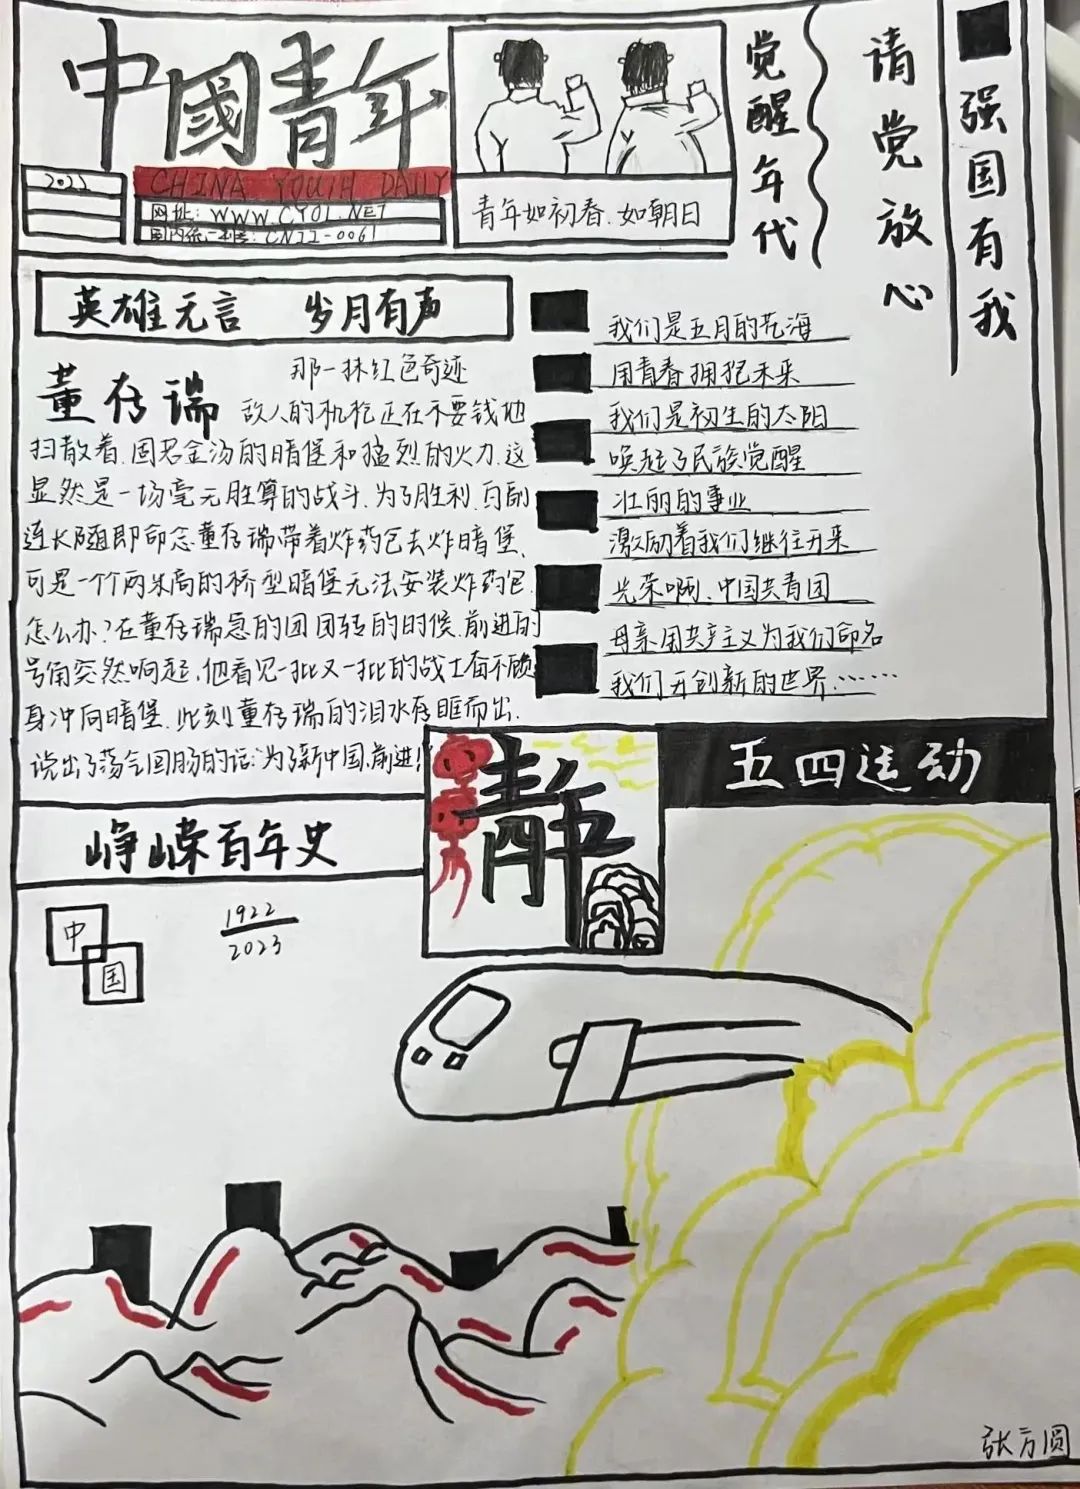 中國青年
2022
CHINA YOUTH DAILY
网址:WWW.CYOL.NET
国内统一刊号:CN11-0061
青年如初春.如朝日
觉醒年代
请党放心
强国有我
英雄无言 岁月有声
董存瑞
那一抹红色奇迹
敌人的机枪正在不要钱地
扫散着.固若金汤的暗堡和猛烈的火力.这
显然是一场毫无胜算的战斗.为了胜利.
连长随即命令董存瑞带着炸药包去炸暗堡.
可是一个个两米高的桥型暗堡无法安装炸药包.
怎么办?在董存瑞急的团团转的时候.前进的
号角突然响起.他看见一批又一批的战士奋不顾
身冲向暗堡.此刻董存瑞的泪水存眶而出.
说出了荡气回肠的话:为了新中国.前进!
我们是五月的花海
用青春拥抱未来
我们是初生的太阳
唤起了民族觉醒
壮丽的事业
激励着我们继往开来
光荣啊.中国共青团
母亲用共产主义为我们命名
我们开创新的世界……
青年
五四
五四运动
峥嵘百年史
中国
1922
2023
张方圆